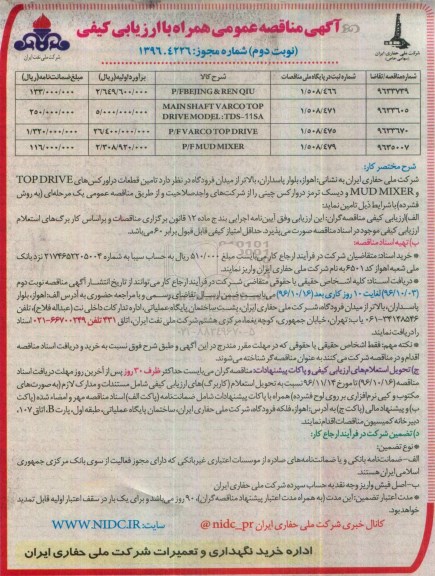 آگهی مناقصه عمومی همراه با ارزیابی کیفی
(نوبت دوم) شماره مجوز: ۱۳۹۶.۴۲۲۶
شرکت ملی نفت ایران
شرکت ملی حفاری ایران
(سهامی خاص)
شماره مناقصه/تقاضا شماره ثبت در پایگاه ملی مناقصات شرح کالا برآورد اولیه (ریال) مبلغ ضمانت نامه (ریال)
۹۶۳۳۷۳۹ ۱/۵۰۸/۴۶۶ P/F BEIJING & REN QIU ۲/۶۴۹/۶۰۰/۰۰۰ ۱۳۳/۰۰۰/۰۰۰
۹۶۳۳۶۰۵ ۱/۵۰۸/۴۷۱ MAIN SHAFT VARCO TOP DRIVE MODEL : TDS-11SA ۵/۰۰۰/۰۰۰/۰۰۰ ۲۵۰/۰۰۰/۰۰۰
۹۶۳۳۶۷۰ ۱/۵۰۸/۴۷۵ P/F VARCO TOP DRIVE ۲۶/۴۰۰/۰۰۰/۰۰۰ ۱/۳۲۰/۰۰۰/۰۰۰
۹۶۳۵۰۰۷ ۱/۵۰۸/۴۷۹ P/F MUD MIXER ۲/۳۰۸/۹۲۰/۰۰۰ ۱۱۶/۰۰۰/۰۰۰
شرح مختصر کار:
شرکت ملی حفاری ایران به نشانی: اهواز، بلوار پاسداران، بالاتر از میدان فرودگاه در نظر دارد تامین قطعات دراورکس های TOP DRIVE
و MUD MIXER و دیسک ترمز دراورکس چینی را از شرکت های واجد صلاحیت و از طریق مناقصه عمومی یک مرحله ای (به روش
فشرده) با شرایط ذیل تامین نماید:
الف) ارزیابی کیفی مناقصه گران: این ارزیابی وفق آیین نامه اجرایی بند ج ماده ۱۲ قانون برگزاری مناقصات و براساس کاربرگ های استعلام
ارزیابی کیفی موجود در اسناد مناقصه صورت می پذیرد. حداقل امتیاز کیفی قابل قبول برابر ۶۰ می باشد.
ب) تهیه اسناد مناقصه:
• خرید اسناد: متقاضیان شرکت در فرآیند ارجاع کار می بایست مبلغ ۵۱۰/۰۰۰ ریال به حساب سیبا به شماره ۲۱۷۴۶۵۲۲۰۵۰۰۳ نزد بانک
ملی شعبه اهواز کد ۶۵۰۱ به نام شرکت ملی حفاری ایران واریز نمایند.
• دریافت اسناد: کلیه اشخاص حقیقی یا حقوقی متقاضی شرکت در فرآیند ارجاع کار می توانند از تاریخ انتشار آگهی مناقصه نوبت دوم
(۹۶/۱۰/۰۳) لغایت ۱۰ روز کاری بعد (۹۶/۱۰/۱۶) می بایست ضمن ارسال تقاضای رسمی و با مراجعه حضوری به آدرس الف: اهواز، بلوار
پاسداران، بالاتر از میدان فرودگاه، شرکت ملی حفاری ایران، پشت ساختمان پایگاه عملیاتی، اداره تدارکات داخلی نت (عبداله فلاح)، تلفن
۰۶۱-۳۴۱۴۸۵۴۶ یا ب: تهران، خیابان جمهوری، کوچه یغما، مرکزی هشتم شرکت ملی نفت ایران، اتاق ۴۳۱ تلفن ۰۲۱-۶۶۷۰۰۲۴۹ اسناد
را دریافت نمایند.
• نکته مهم: فقط اشخاص حقیقی یا حقوقی که در مهلت مقرر مندرج در این آگهی و طبق شرح فوق نسبت به خرید و دریافت اسناد مناقصه
اقدام و در مناقصه شرکت می کنند به عنوان مناقصه گر شناخته می شوند.
ج) تحویل استعلام های ارزیابی کیفی و پاکات پیشنهادات: مناقصه گران می بایست حداکثر ظرف ۳۰ روز پس از آخرین روز مهلت دریافت اسناد
مناقصه (۹۶/۱۰/۱۶) تا مورخ ۹۶/۱۱/۱۴ نسبت به تحویل استعلام (کاربرگ های) ارزیابی کیفی شامل مستندات و مدارک لازم (به صورت های
مکتوب و کپی نرم افزاری بر روی لوح فشرده) همراه با پاکات پیشنهادات شامل ضمانت نامه (پاکت الف) اسناد مناقصه مهر و امضاء شده (پاکت
ب) و پیشنهاد مالی (پاکت ج) به آدرس: اهواز، فلکه فرودگاه، شرکت ملی حفاری ایران، ساختمان پایگاه عملیاتی، طبقه اول، پارت B، اتاق ۱۰۷،
دبیرخانه کمیسیون مناقصات اقدام نمایند.
د) تضمین شرکت در فرآیند ارجاع کار:
• نوع تضمین:
الف- ضمانت نامه بانکی و یا ضمانت نامه های صادره از موسسات اعتباری غیربانکی که دارای مجوز فعالیت از سوی بانک مرکزی جمهوری
اسلامی ایران هستند.
ب- اصل فیش واریز وجه نقد به حساب سپرده شرکت ملی حفاری ایران
• مدت اعتبار تضمین: این مدت (به همراه مدت اعتبار پیشنهاد مناقصه گران)، ۹۰ روز می باشد و برای یک بار در سقف اعتبار اولیه قابل تمدید
خواهد بود.
کانال خبری شرکت ملی حفاری ایران @ nidc_pr سایت: WWW.NIDC.IR
اداره خرید نگهداری و تعمیرات شرکت ملی حفاری ایران